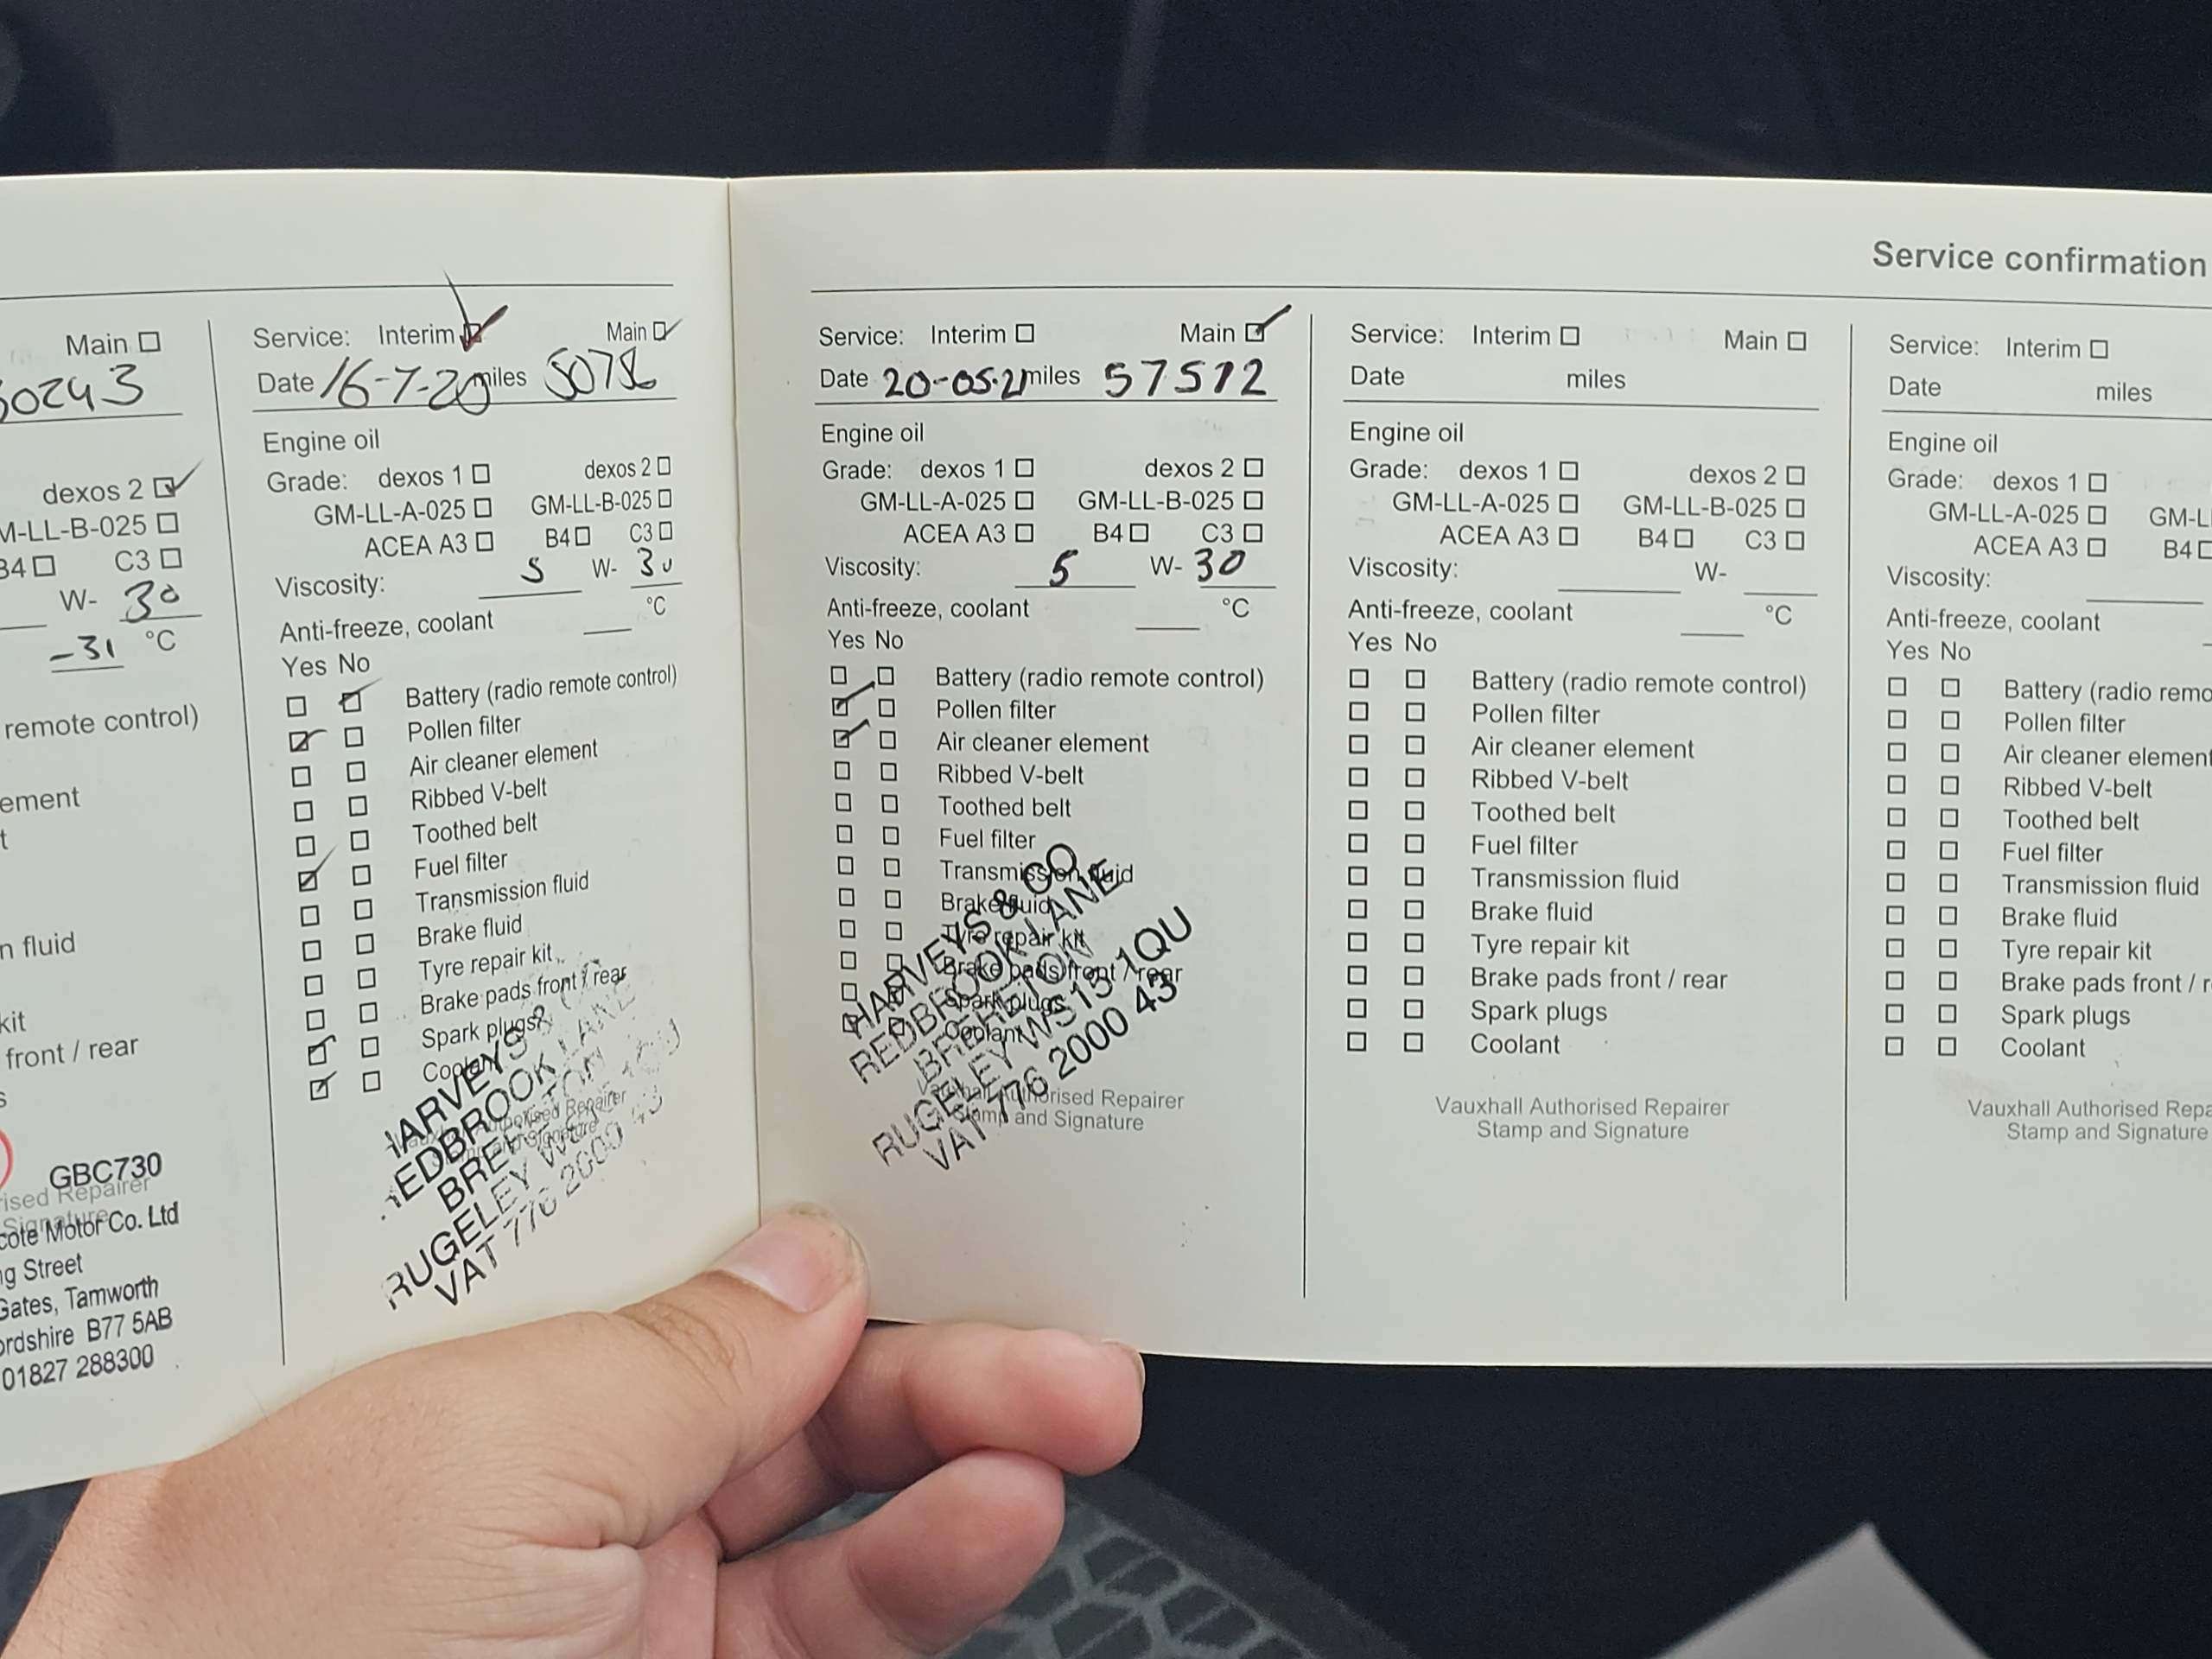 Service confirmation
Main
30243
dexos 2
M-LL-B-025
B4 C3
W- 30
-31 °C
remote control)
ement
t
n fluid
kit
front / rear
s
GBC730
rised Repairer
Signature
cote Motor Co. Ltd
ng Street
Gates, Tamworth
ordshire B77 5AB
01827 288300
Service: Interim Main
Date 16-7-20 miles
Engine oil
Grade: dexos 1 dexos 2
GM-LL-A-025 GM-LL-B-025
ACEA A3 B4 C3
Viscosity: 5 W- 30
Anti-freeze, coolant °C
Yes No
Battery (radio remote control)
Pollen filter
Air cleaner element
Ribbed V-belt
Toothed belt
Fuel filter
Transmission fluid
Brake fluid
Tyre repair kit
Brake pads front / rear
Spark plugs
Coolant
Vauxhall Authorised Repairer
Stamp and Signature
HARVEYS & CO
REDBROOK LANE
BRERETON
RUGELEY WS15 1QU
VAT 776 2000 43
Service: Interim Main
Date 20-05-21 miles 57512
Engine oil
Grade: dexos 1 dexos 2
GM-LL-A-025 GM-LL-B-025
ACEA A3 B4 C3
Viscosity: 5 W- 30
Anti-freeze, coolant °C
Yes No
Battery (radio remote control)
Pollen filter
Air cleaner element
Ribbed V-belt
Toothed belt
Fuel filter
Transmission fluid
Brake fluid
Tyre repair kit
Brake pads front / rear
Spark plugs
Coolant
Vauxhall Authorised Repairer
Stamp and Signature
HARVEYS & CO
REDBROOK LANE
BRERETON
RUGELEY WS15 1QU
VAT 776 2000 43
Service: Interim Main
Date miles
Engine oil
Grade: dexos 1 dexos 2
GM-LL-A-025 GM-LL-B-025
ACEA A3 B4 C3
Viscosity: W-
Anti-freeze, coolant °C
Yes No
Battery (radio remote control)
Pollen filter
Air cleaner element
Ribbed V-belt
Toothed belt
Fuel filter
Transmission fluid
Brake fluid
Tyre repair kit
Brake pads front / rear
Spark plugs
Coolant
Vauxhall Authorised Repairer
Stamp and Signature
Service: Interim
Date miles
Engine oil
Grade: dexos 1
GM-LL-A-025 GM-L
ACEA A3 B4
Viscosity:
Anti-freeze, coolant
Yes No
Battery (radio remo
Pollen filter
Air cleaner element
Ribbed V-belt
Toothed belt
Fuel filter
Transmission fluid
Brake fluid
Tyre repair kit
Brake pads front / r
Spark plugs
Coolant
Vauxhall Authorised Repa
Stamp and Signature